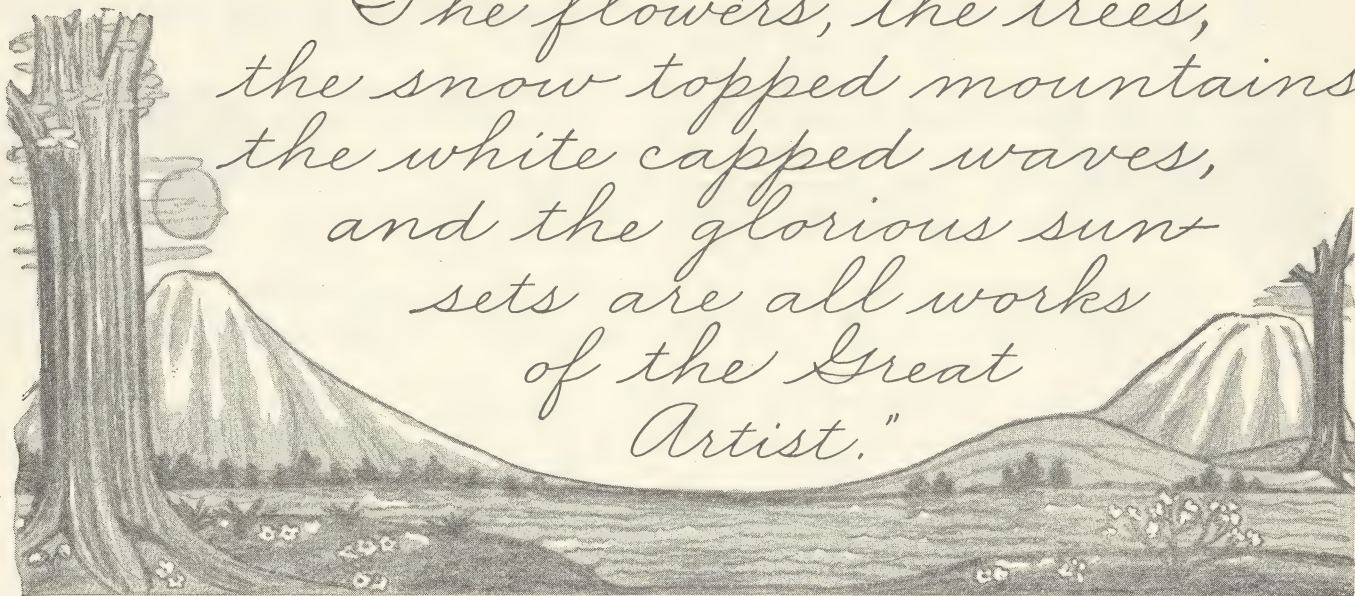 The flowers, the trees,
the snow topped mountains
the white capped waves,
and the glorious sun-
sets are all works
of the Great
Artist."